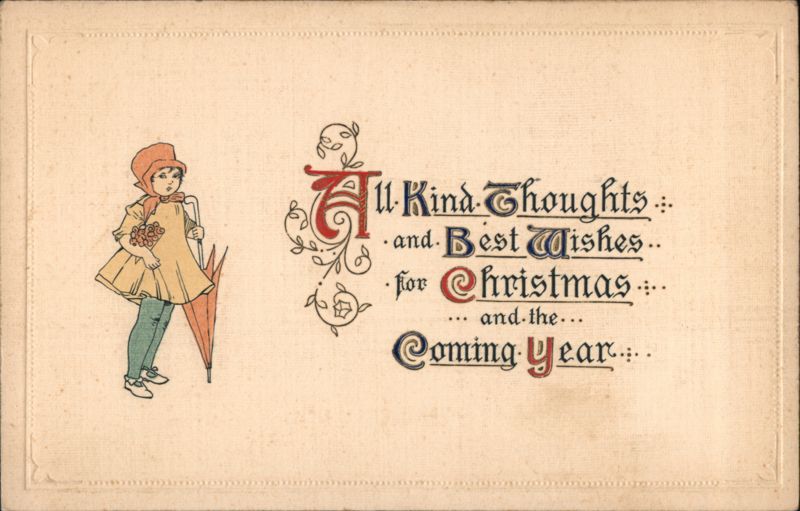 All Kind Thoughts
and Best Wishes
for Christmas
and the
Coming Year